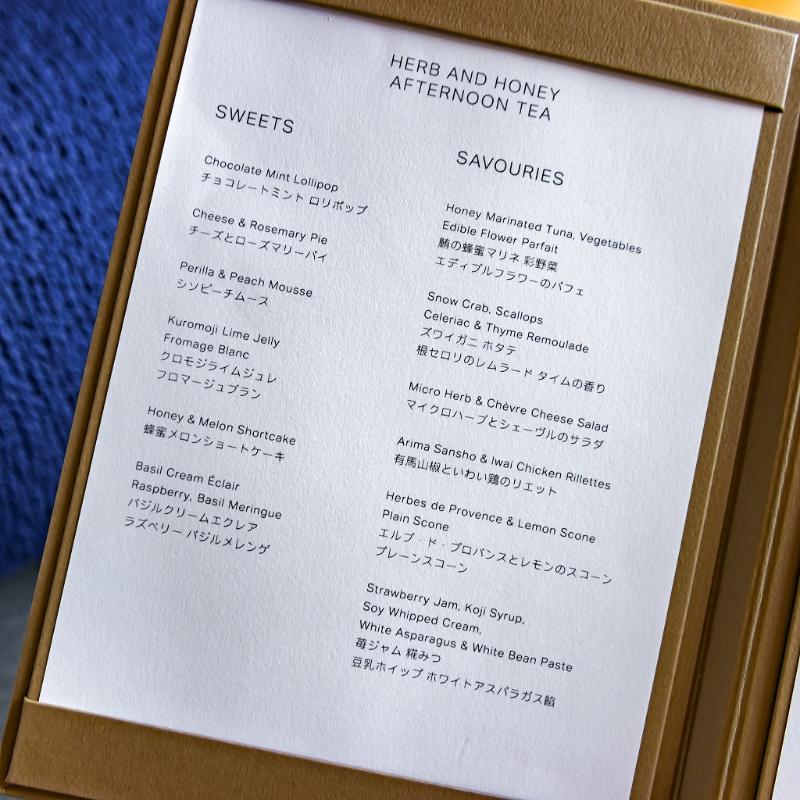 HERB AND HONEY
AFTERNOON TEA
SWEETS
Chocolate Mint Lollipop
チョコレートミント ロリポップ
Cheese & Rosemary Pie
チーズとローズマリーパイ
Perilla & Peach Mousse
シソピーチムース
Kuromoji Lime Jelly
Fromage Blanc
クロモジライムジュレ
フロマージュブラン
Honey & Melon Shortcake
蜂蜜メロンショートケーキ
Basil Cream Éclair
Raspberry, Basil Meringue
バジルクリームエクレア
ラズベリー バジルメレンゲ
SAVOURIES
Honey Marinated Tuna, Vegetables
Edible Flower Parfait
鮪の蜂蜜マリネ 彩野菜
エディブルフラワーのパフェ
Snow Crab, Scallops
Celeriac & Thyme Remoulade
ズワイガニ ホタテ
根セロリのレムラード タイムの香り
Micro Herb & Chèvre Cheese Salad
マイクロハーブとシェーヴルのサラダ
Arima Sansho & Iwai Chicken Rillettes
有馬山椒といわい鶏のリエット
Herbes de Provence & Lemon Scone
Plain Scone
エルブ・ド・プロバンスとレモンのスコーン
プレーンスコーン
Strawberry Jam, Koji Syrup,
Soy Whipped Cream,
White Asparagus & White Bean Paste
苺ジャム 糀みつ
豆乳ホイップ ホワイトアスパラガス餡